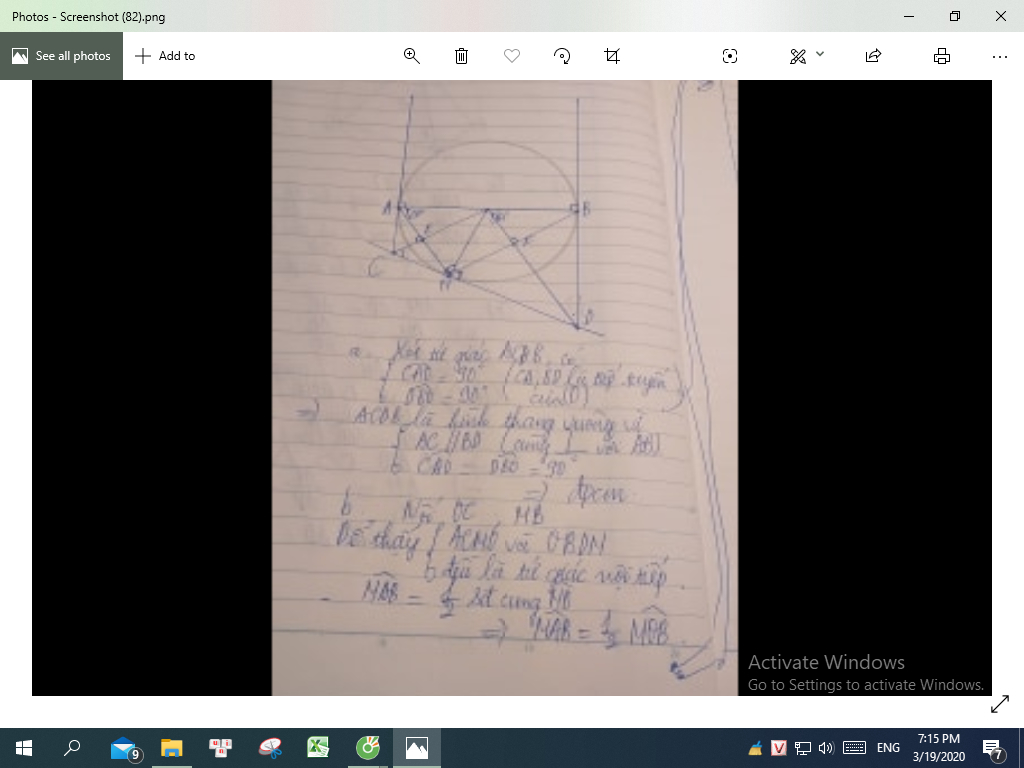 Photos - Screenshot (82).png
See all photos
Add to
A
B
C
M
D
a. Xét tứ giác ACDB có
CAO = 90° (CA, BD là tiếp tuyến
DBO = 90° của (O)
=> ACDB là hình thang vuông vì
AC // BD (cùng ⊥ với AB)
CAO = DBO = 90°
=> đpcm
b Nối OC MB
Dễ thấy ACMO và OBDM
đều là tứ giác nội tiếp
MAB = 1/2 Sđ cung MB
=> MAB = 1/2 MOB
Activate Windows
Go to Settings to activate Windows.
9
ENG
7:15 PM
3/19/2020
7